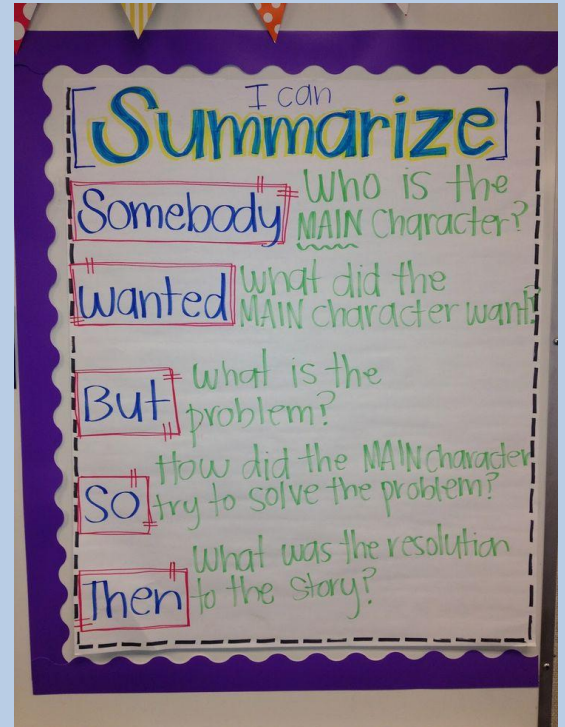 I can
Summarize
Somebody Who is the
MAIN Character?
Wanted What did the
MAIN character want?
But What is the
problem?
So How did the MAIN character
try to solve the problem?
Then What was the resolution
to the story?